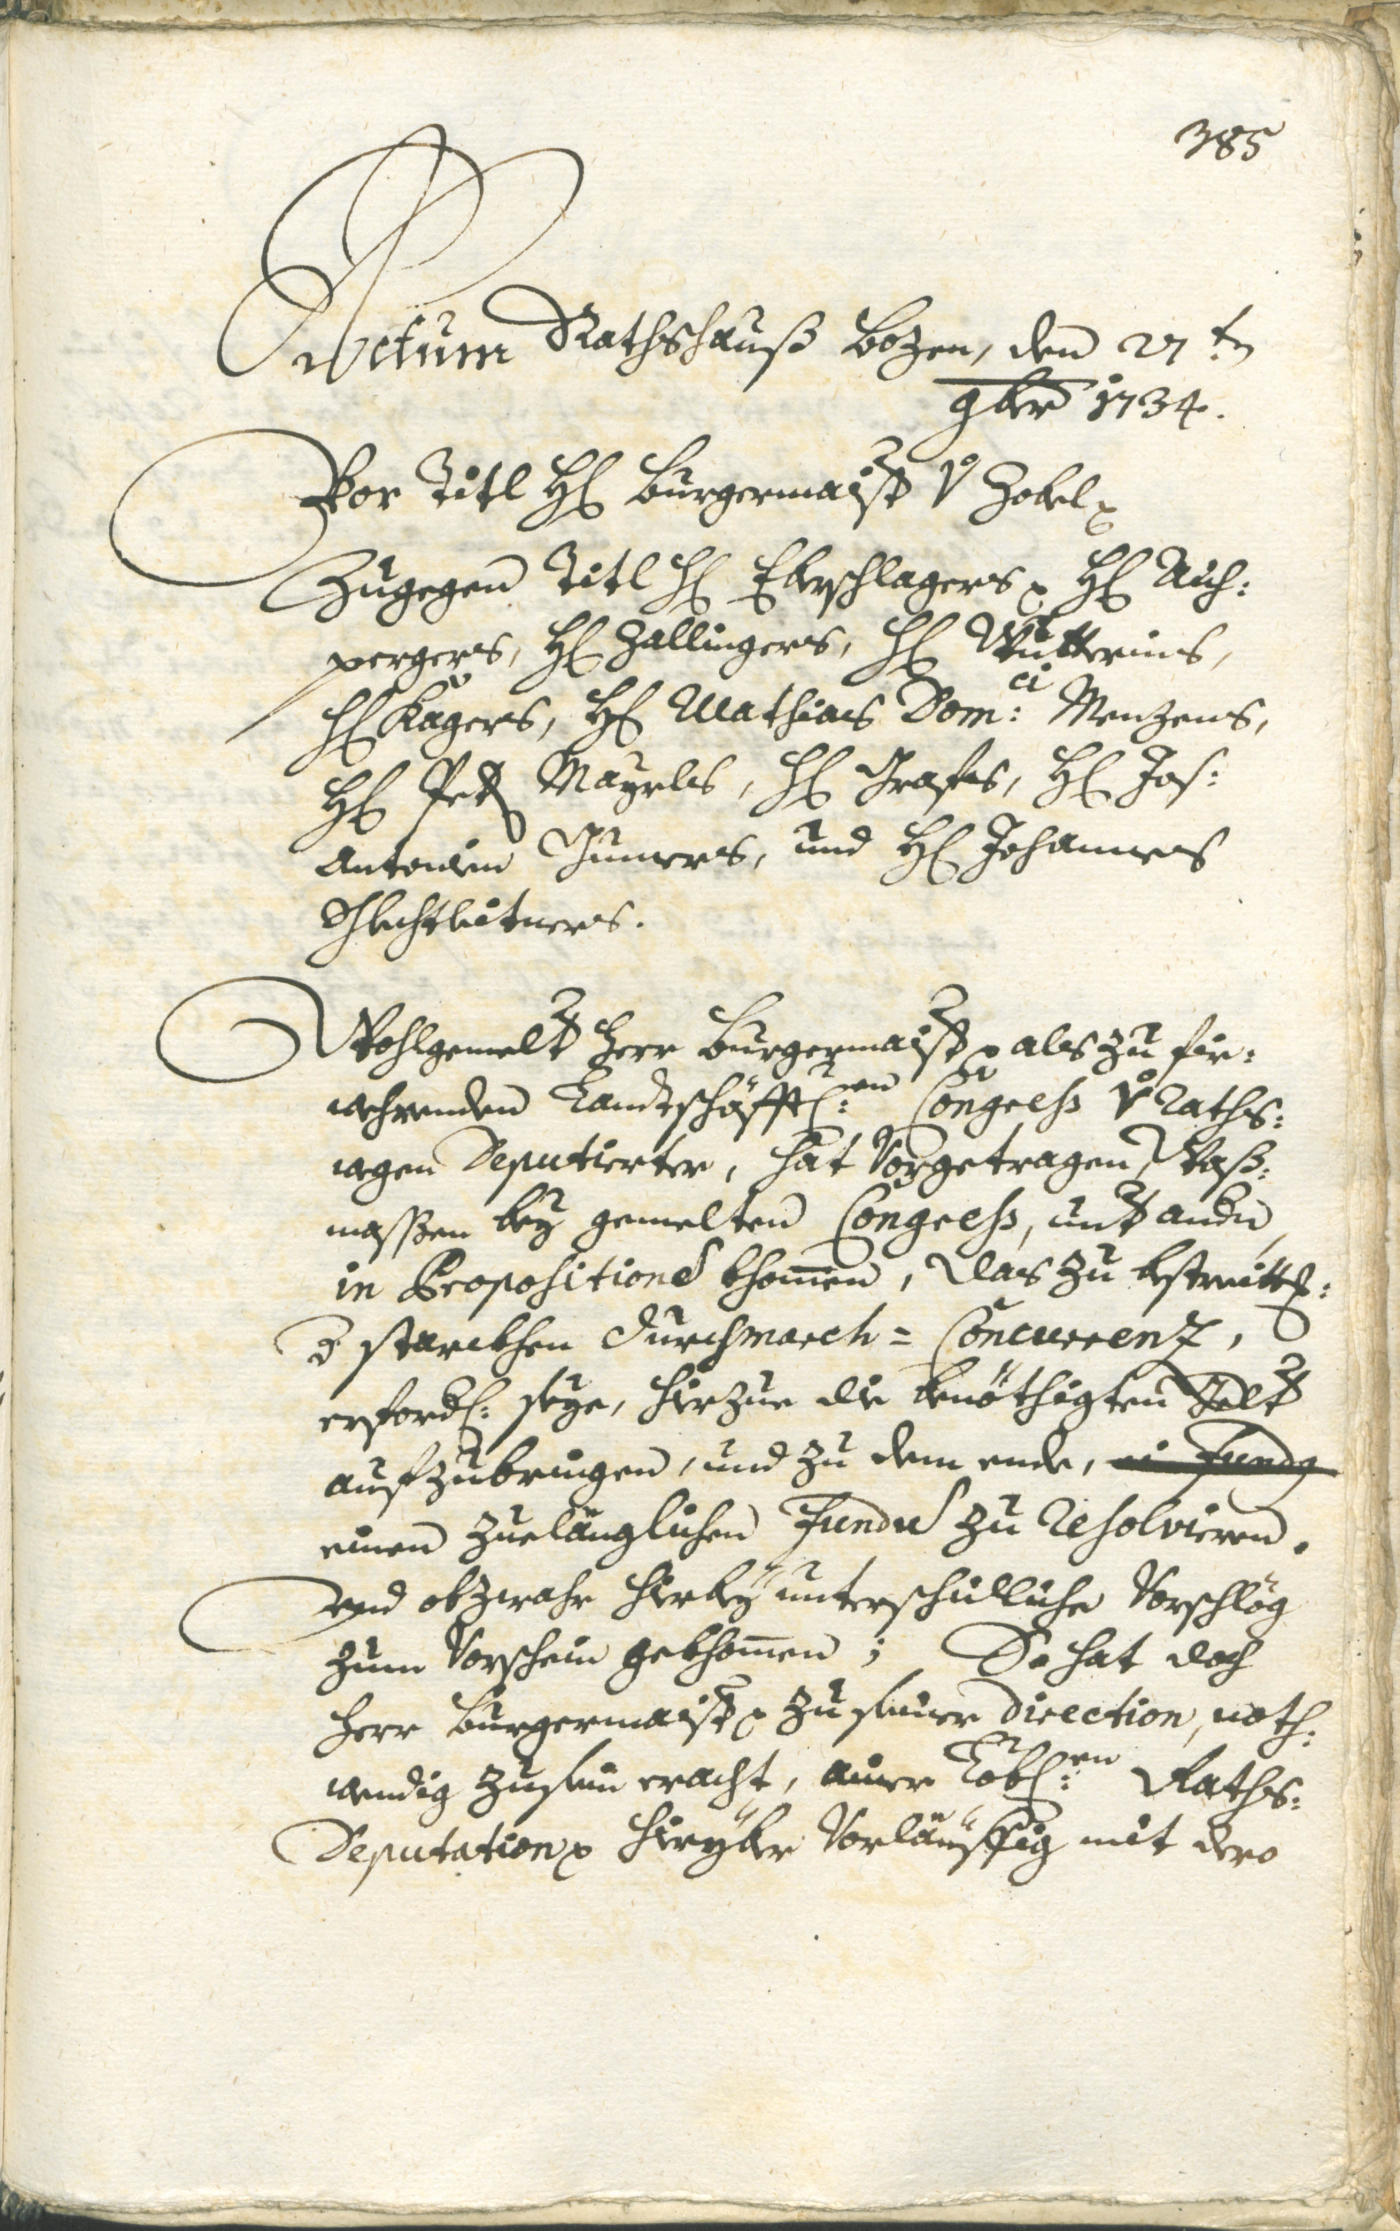 385
Actum Rathshauß Bozen, den 27 t:
9ber 1734.
Vor Titl H: Burgermaister v: Zobel
Zugegen Titl H: Eberschlagers H: Auh:
pergers, H: Zallingers, H:
H: Kagers, H: Mathias Dom:ci Menzens,
H: Peter Mayrls, H: Grafes, H: Jos:
Antonien Gumers, und H: Johannes
Schlechtleitners.
Wohlgemelter Herr Burgermaister als zu für:
wehrenden Landtschäfftl:en Congress v: Raths:
wegen Deputierter, hat Vorgetragen, Waß:
massen bey gemelten Congress, unter andern
in Propositione khomen, das zu bestreitt:
d starckhen Durchmarch= Concurrenz,
erforderl: seye, hierzue die benöthigten Gelter
aufzubringen, und zu dem ende,
einen zuelänglichen Fundum zu resolvieren.
Und obzwahr hierbey unterschidliche Vorschlög
zum Vorschein gekhomen; So hat doch
Herr Burgermaister zu seiner Direction, noth:
wendig zusein eracht, ainer Löbl:en Raths:
Deputation hieryber Vorläuffig mit dero